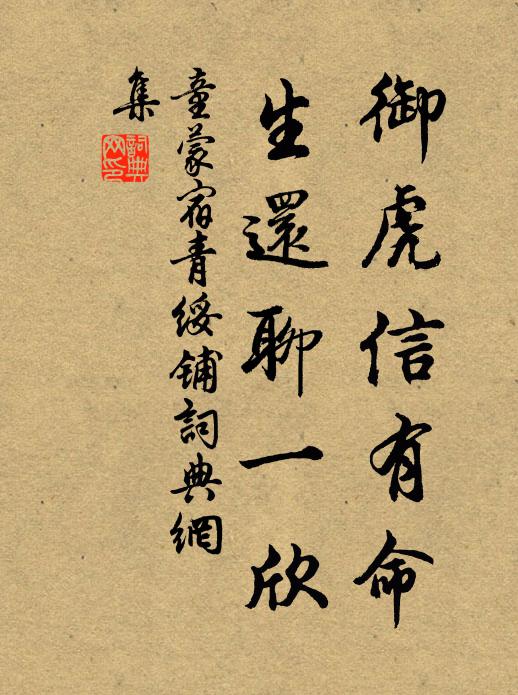 御虎信有命
生還聊一欣
童蒙宿青綏鋪詞典網
集
詞典
网印